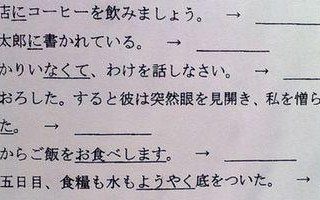 店にコーヒーを飲みましょう。 → ______
太郎に書かれている。 → ______
かりいなくて、わけを話しなさい。 →
おろした。すると彼は突然眼を見開き、私を憎ら
た。 → ______
からご飯をお食べします。 → ______
五日目、食糧も水もようやく底をついた。 →